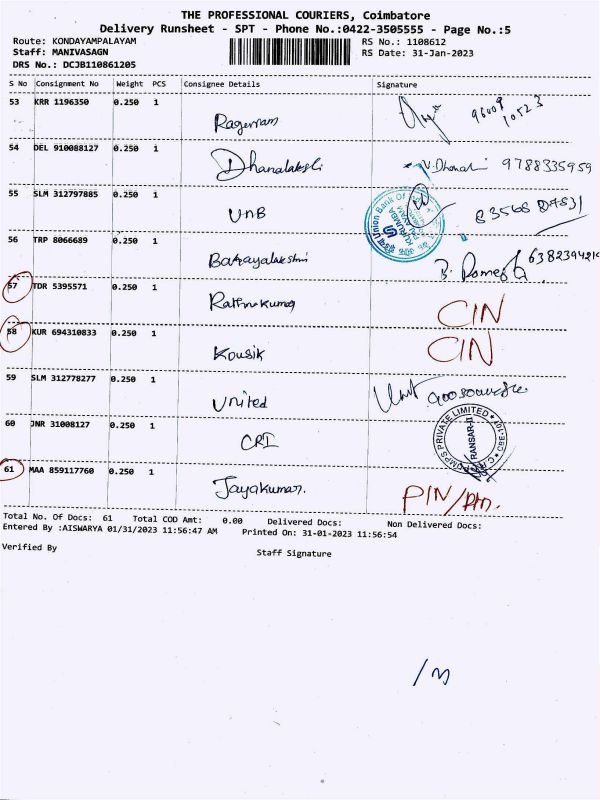 THE PROFESSIONAL COURIERS, Coimbatore
Delivery Runsheet - SPT - Phone No.:0422-3505555 - Page No.:5
Route: KONDAYAMPALAYAM RS No.: 1108612
Staff: MANIVASAGN RS Date: 31-Jan-2023
DRS No.: DCJB110861205
S No Consignment No Weight PCS Consignee Details Signature
53 KRR 1196350 0.250 1
54 DEL 910088127 0.250 1
Dhanalakshi 9788335959
55 SLM 312797885 0.250 1
UNB
Union Bank Of
56 TRP 8066689 0.250 1
57 TDR 5395571 0.250 1
Rathnakumar CIN
58 KUR 694310833 0.250 1
Kousik CIN
59 SLM 312778277 0.250 1
United
60 JNR 31008127 0.250 1
CRI
PUMPS PRIVATE LIMITED
61 MAA 859117760 0.250 1
Jayakumar.
Total No. Of Docs: 61 Total COD Amt: 0.00 Delivered Docs: Non Delivered Docs:
Entered By :AISWARYA 01/31/2023 11:56:47 AM Printed On: 31-01-2023 11:56:54
Verified By Staff Signature